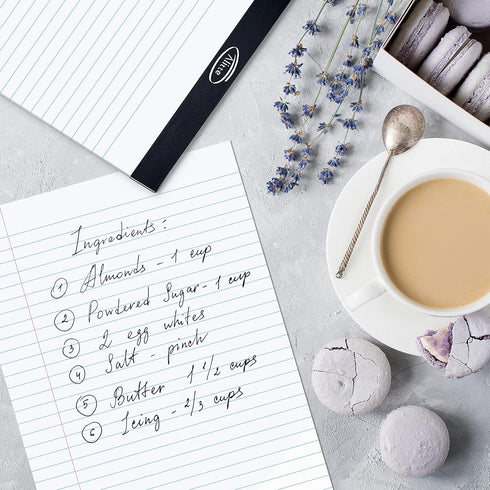 Alisse
Ingredients:
1 Almonds - 1 cup
2 Powdered Sugar - 1 cup
3 2 egg whites
4 Salt - pinch
5 Butter 1 1/2 cups
6 Icing - 2/3 cups